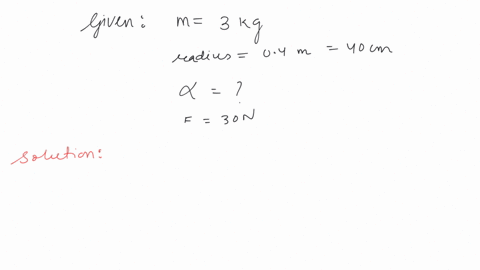 Given: m = 3 kg
radius = 0.4 m = 40 cm
α = ?
F = 30N
Solution: